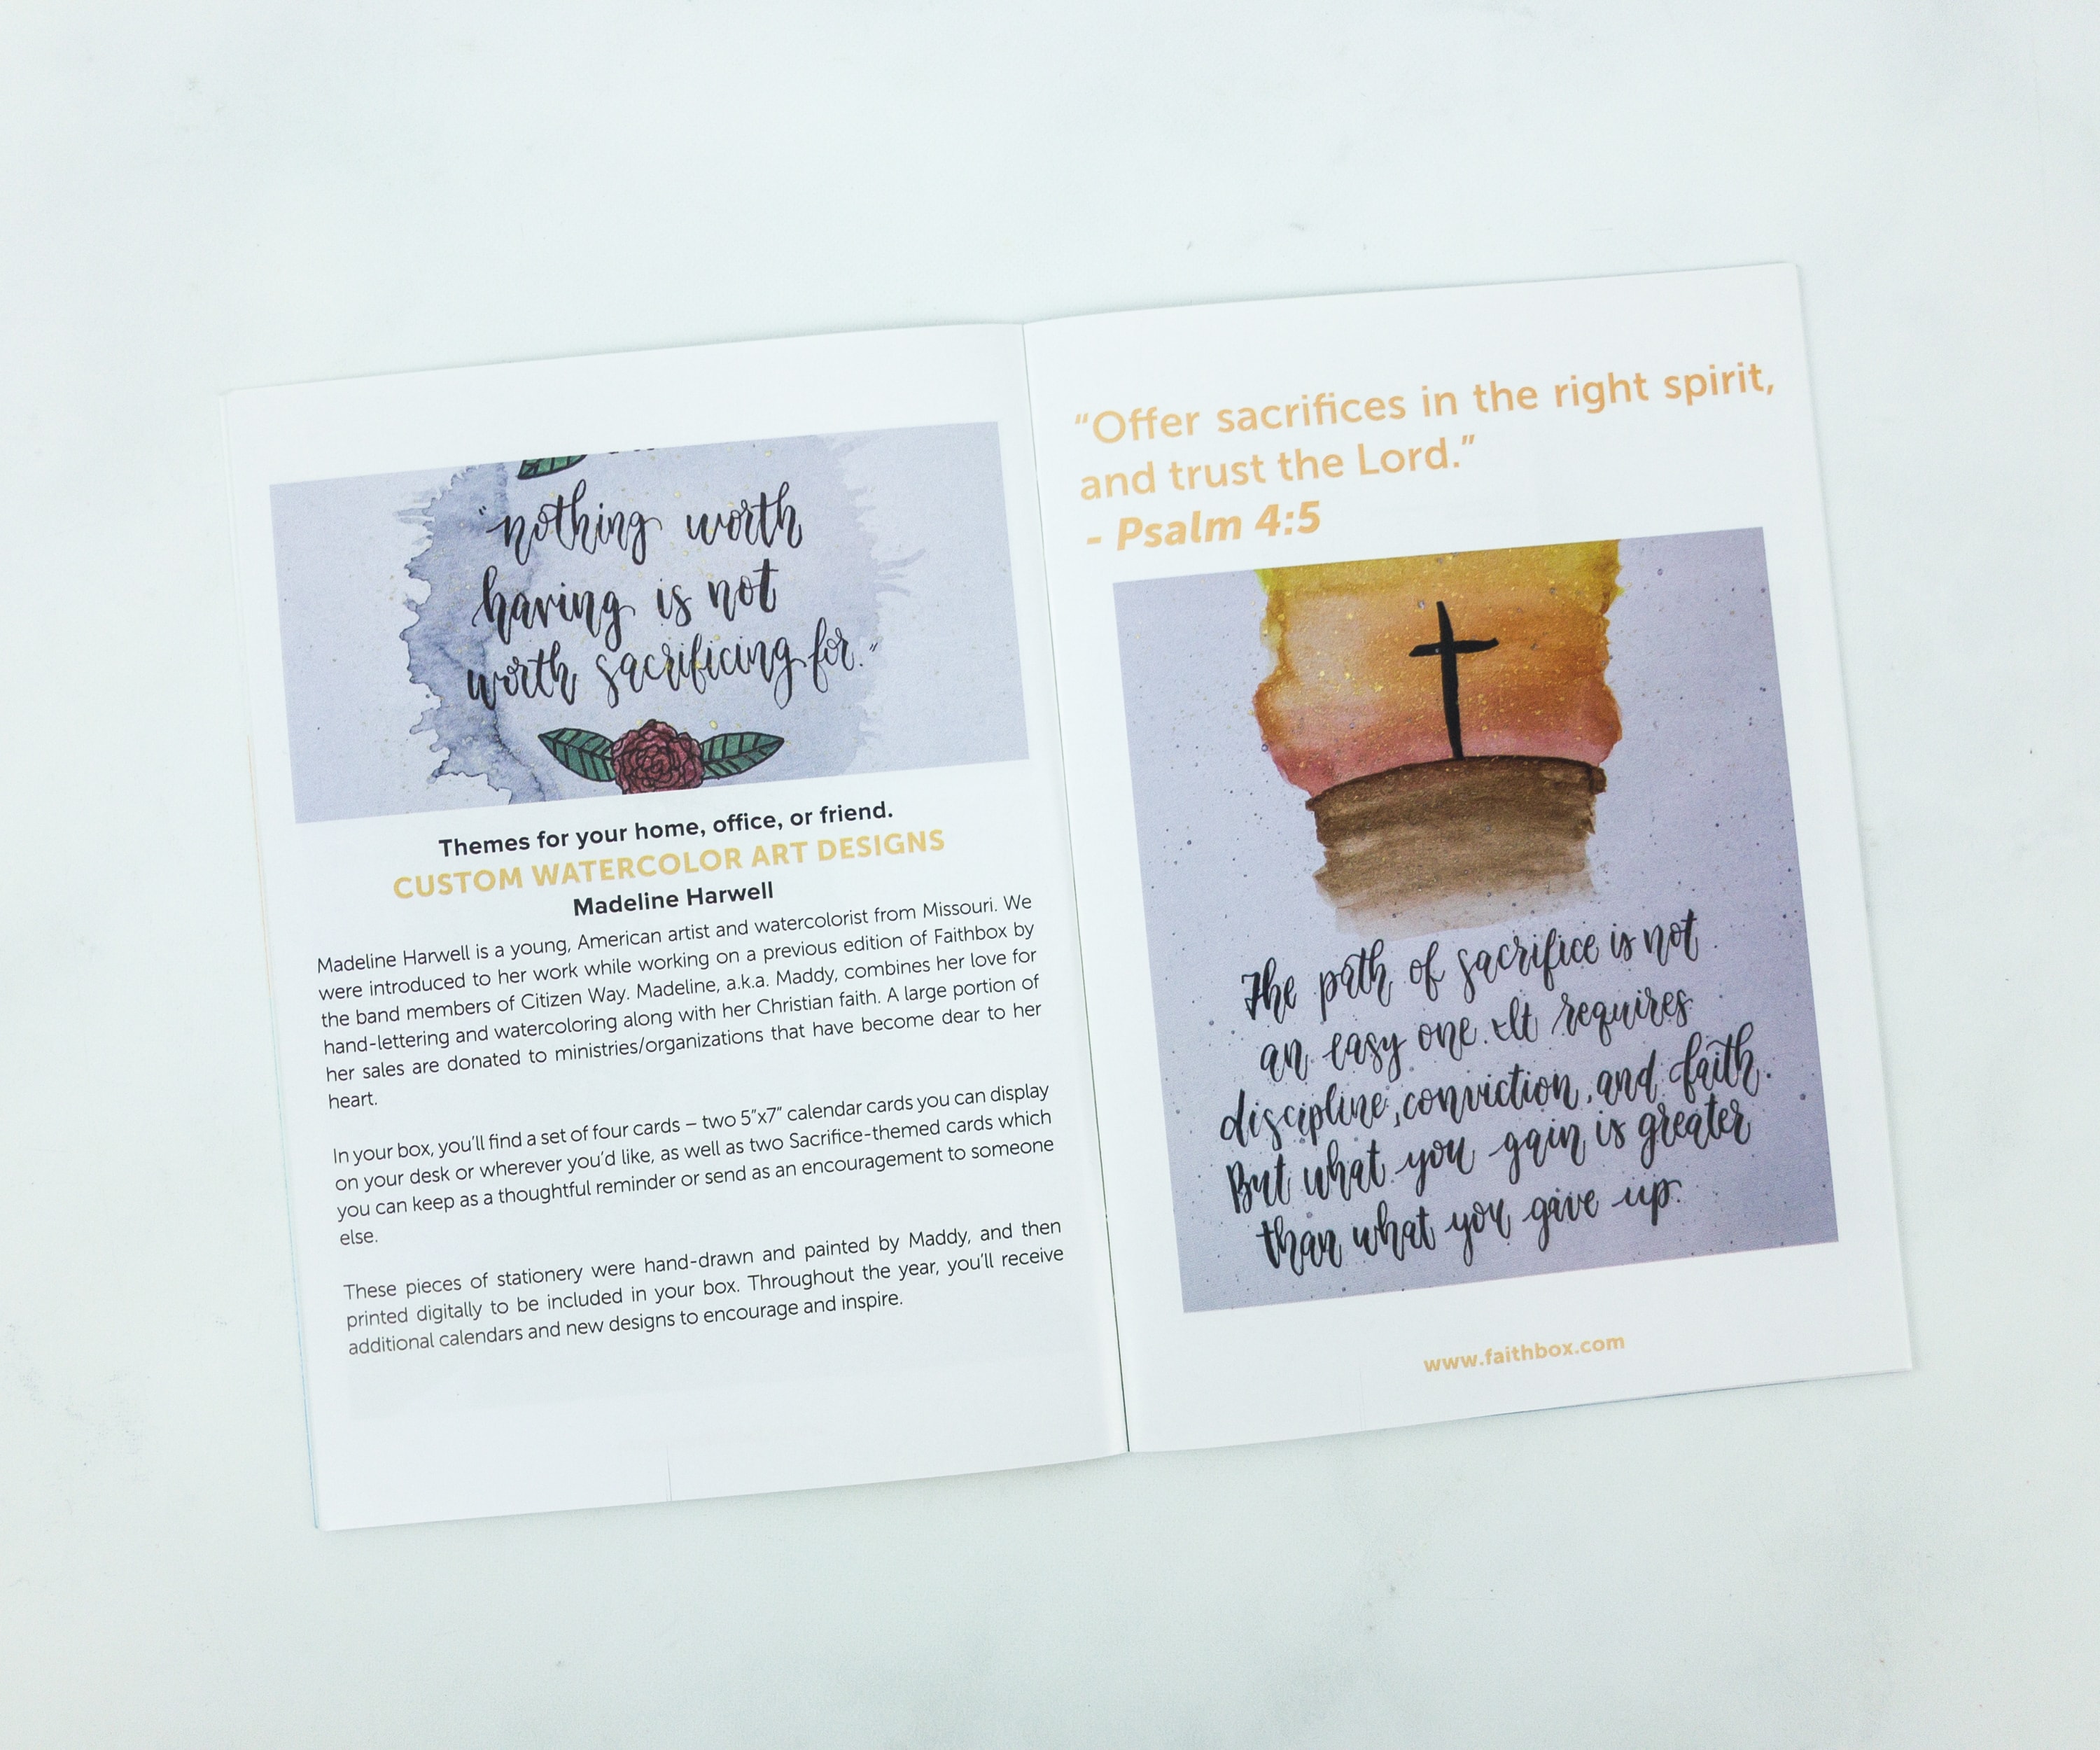 "nothing worth
having is not
worth sacrificing for."
Themes for your home, office, or friend.
CUSTOM WATERCOLOR ART DESIGNS
Madeline Harwell
Madeline Harwell is a young, American artist and watercolorist from Missouri. We
were introduced to her work while working on a previous edition of Faithbox by
the band members of Citizen Way. Madeline, a.k.a. Maddy, combines her love for
hand-lettering and watercoloring along with her Christian faith. A large portion of
her sales are donated to ministries/organizations that have become dear to her
heart.
In your box, you'll find a set of four cards – two 5"x7" calendar cards you can display
on your desk or wherever you'd like, as well as two Sacrifice-themed cards which
you can keep as a thoughtful reminder or send as an encouragement to someone
else.
These pieces of stationery were hand-drawn and painted by Maddy, and then
printed digitally to be included in your box. Throughout the year, you'll receive
additional calendars and new designs to encourage and inspire.
"Offer sacrifices in the right spirit,
and trust the Lord."
- Psalm 4:5
The path of sacrifice is not
an easy one. It requires
discipline, conviction, and faith.
But what you gain is greater
than what you gave up.
www.faithbox.com